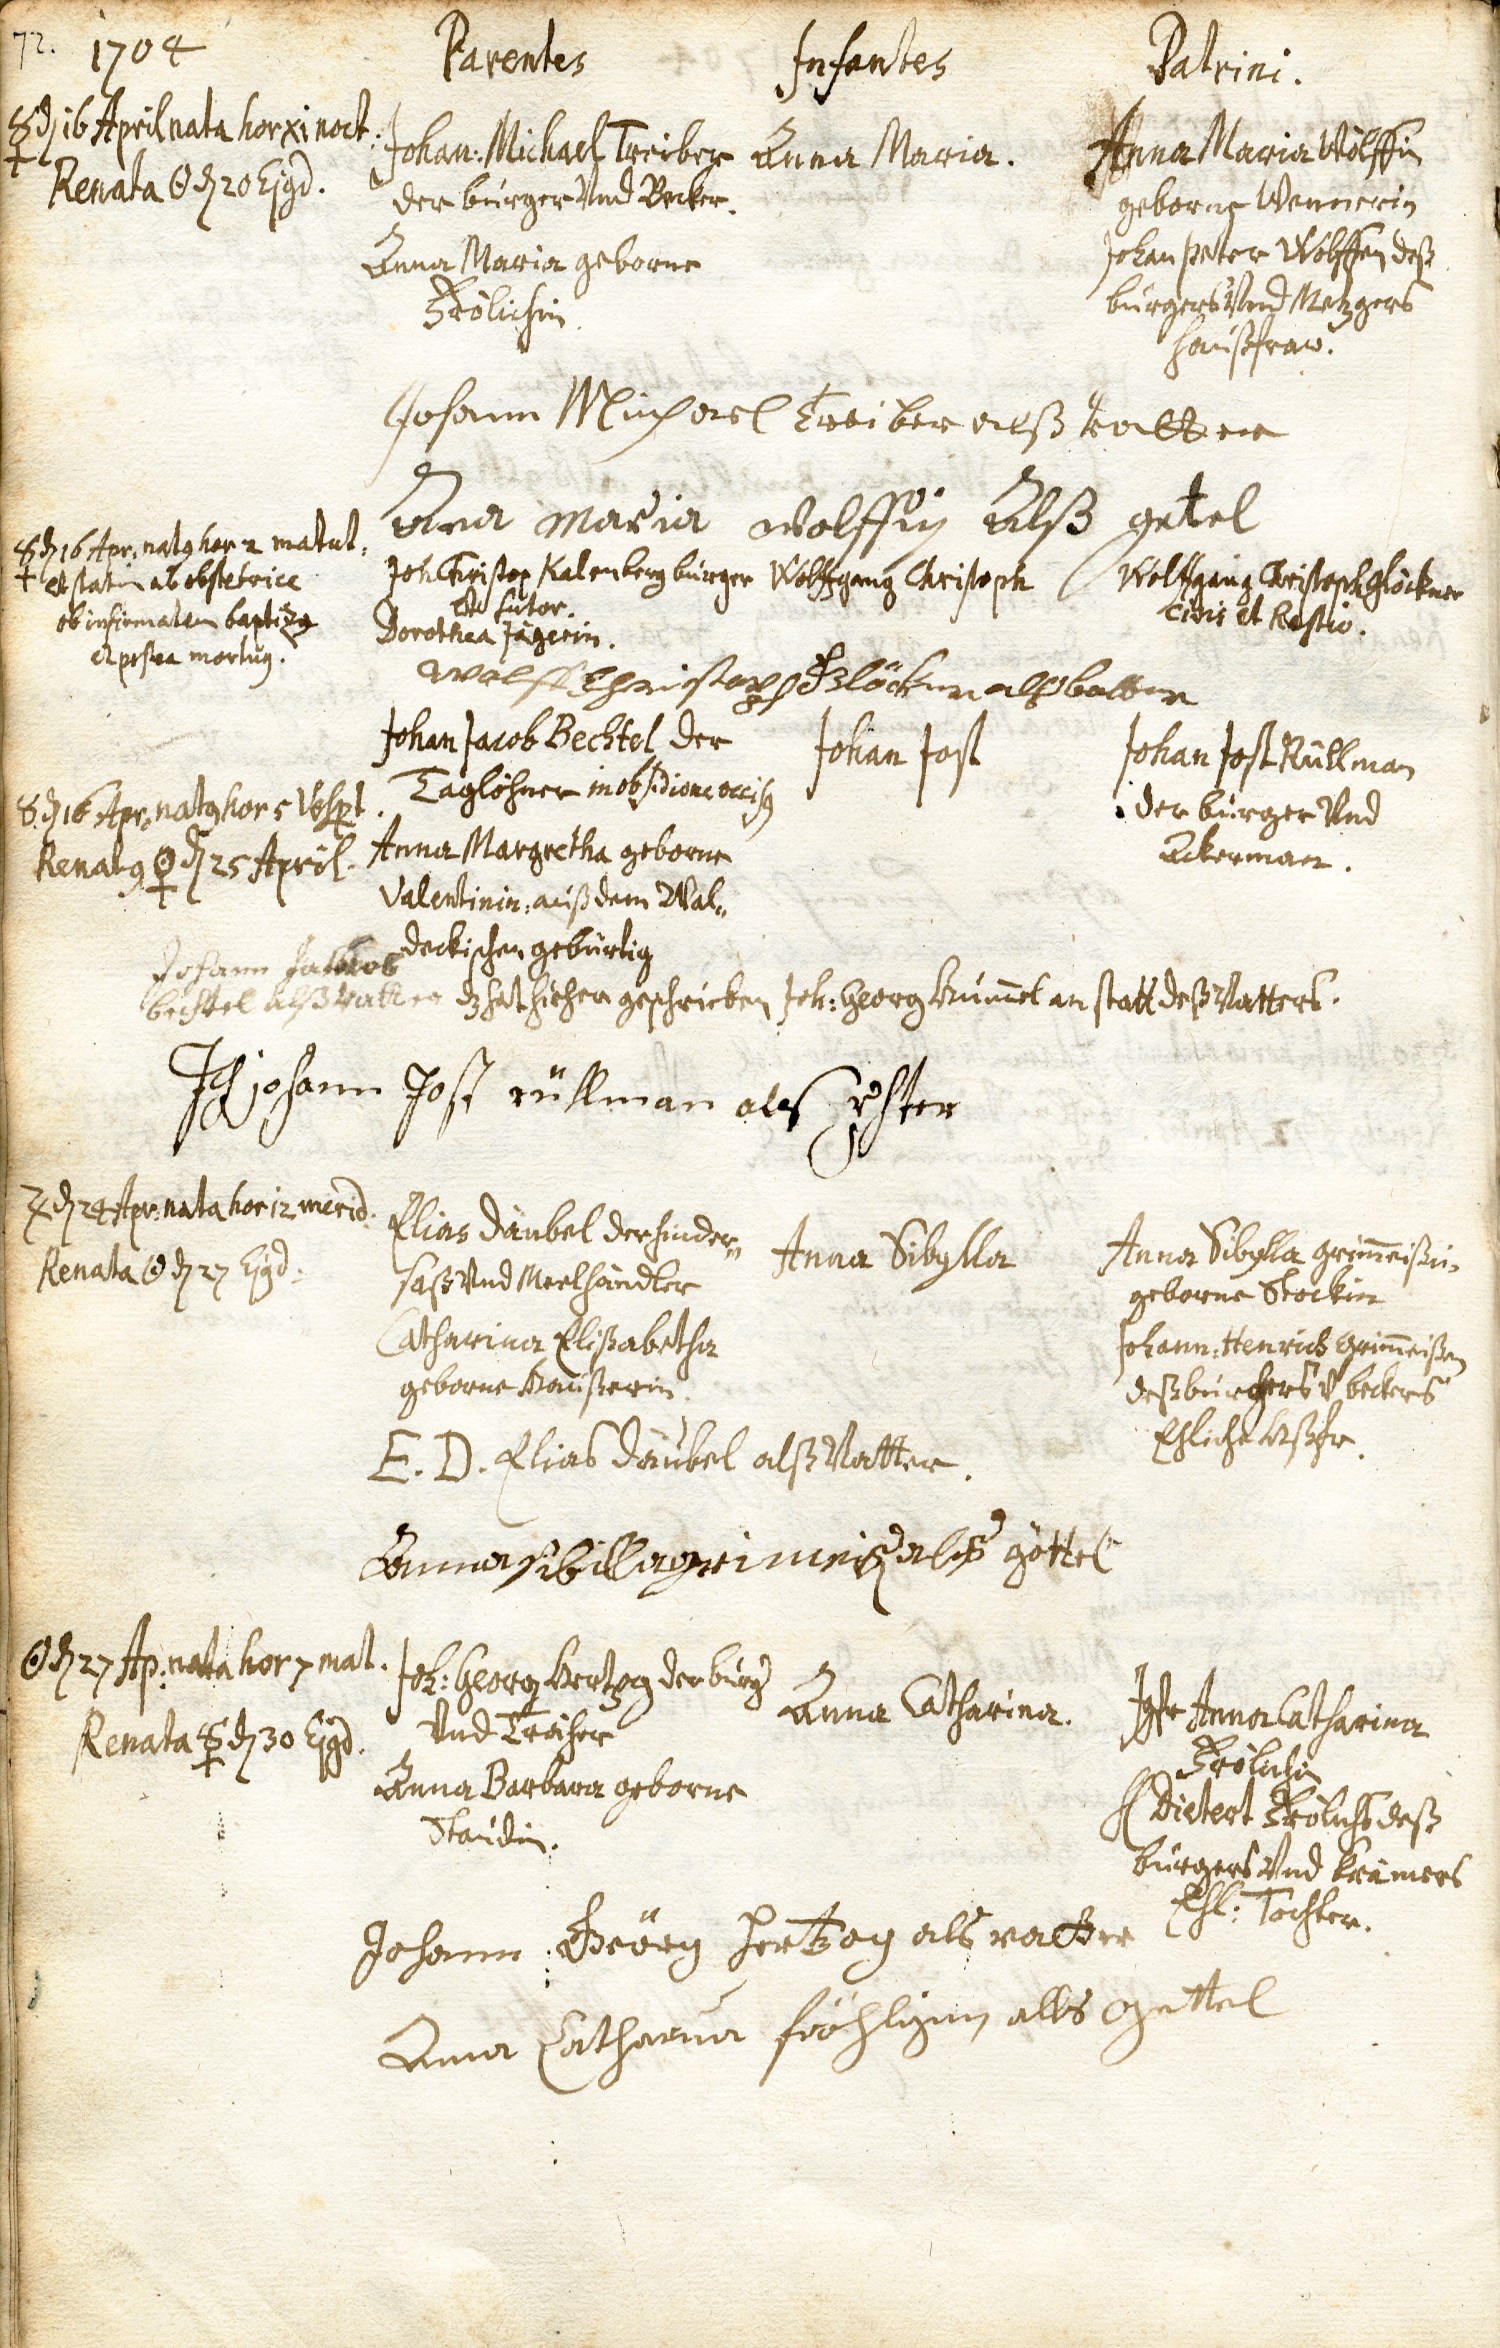 72. 1704 Parentes Infantes Patrini.
☿ d 16 April nata hor xi noct:
Renata ☉ d 20 Ejgd.
Johan: Michael Treiber
der burger Vnd Becker.
Anna Maria geborne
Frölichin.
Anna Maria.
Anna Maria Wölffin
geborne Wennerin
Johan Peter Wolffen deß
burgers Vnd Metzgers
haußfraw.
Johann Michael Treiber alß vatter
Ana maria wolffin Alß gettel
☿ d 16 Apr: nat9 hor 2 matut:
† et statim ab obstetrice
ob infirmatem baptiz9
et postea mortu9.
Joh Christop Kalenberg burger
et sutor.
Dorothea Jägerin.
Wolffgang Christoph
Wolffgang Christoph Glöckner
civis et Restio.
Wolff Christoph Glöckner alß vatter
☿ d 16 Apr: nat9 hor 5 Vespt.
Renat9 ♀ d 25 April.
Johan Jacob Bechtel der
Taglöhner in obsidione occis9
Anna Margretha geborne
Valentinin: auß dem Wal„
deckischen gebürtig
Johan Jost
Johan Jost Rüllman
der burger Vnd
Ackerman.
Johann Jacob
bechtel alß vatter dz hat hieher geschrieben Joh: Georg Kümmel an statt deß Vatters.
Ich johann Jost rüllman als
♃ d 24 Apr: nata hor 12 merid:
Renata ☉ d 27 Ejgd:
Elias Däubel der hinder„
saß Vnd Meelhändler
Catharina Elisabetha
geborne
Anna Sibylla
Anna Sibylla Grimmeißin
geborne Stockin
Johann: Henrich Grimmeißen
deß burgers V beckers
Ehliche Haßfr.
E. D. Elias Däubel alß Vatter.
Anna sibilla grimeisin alß göttel
☉ d 27 Ap: nata hor 7 mat.
Renata ☿ d 30 Ejgd.
Joh: Georg Hertzog der burg
Vnd
Anna Barbara geborne
Staudin.
Anna Catharina.
Jgfr Anna Catharina
Frölichin
H Dietert Frölichs deß
burgers Vnd Krämers
Ehl: Tochter.
Johann Geörg Hertzog als vatter
Anna Catharina fröhligin alls gettel